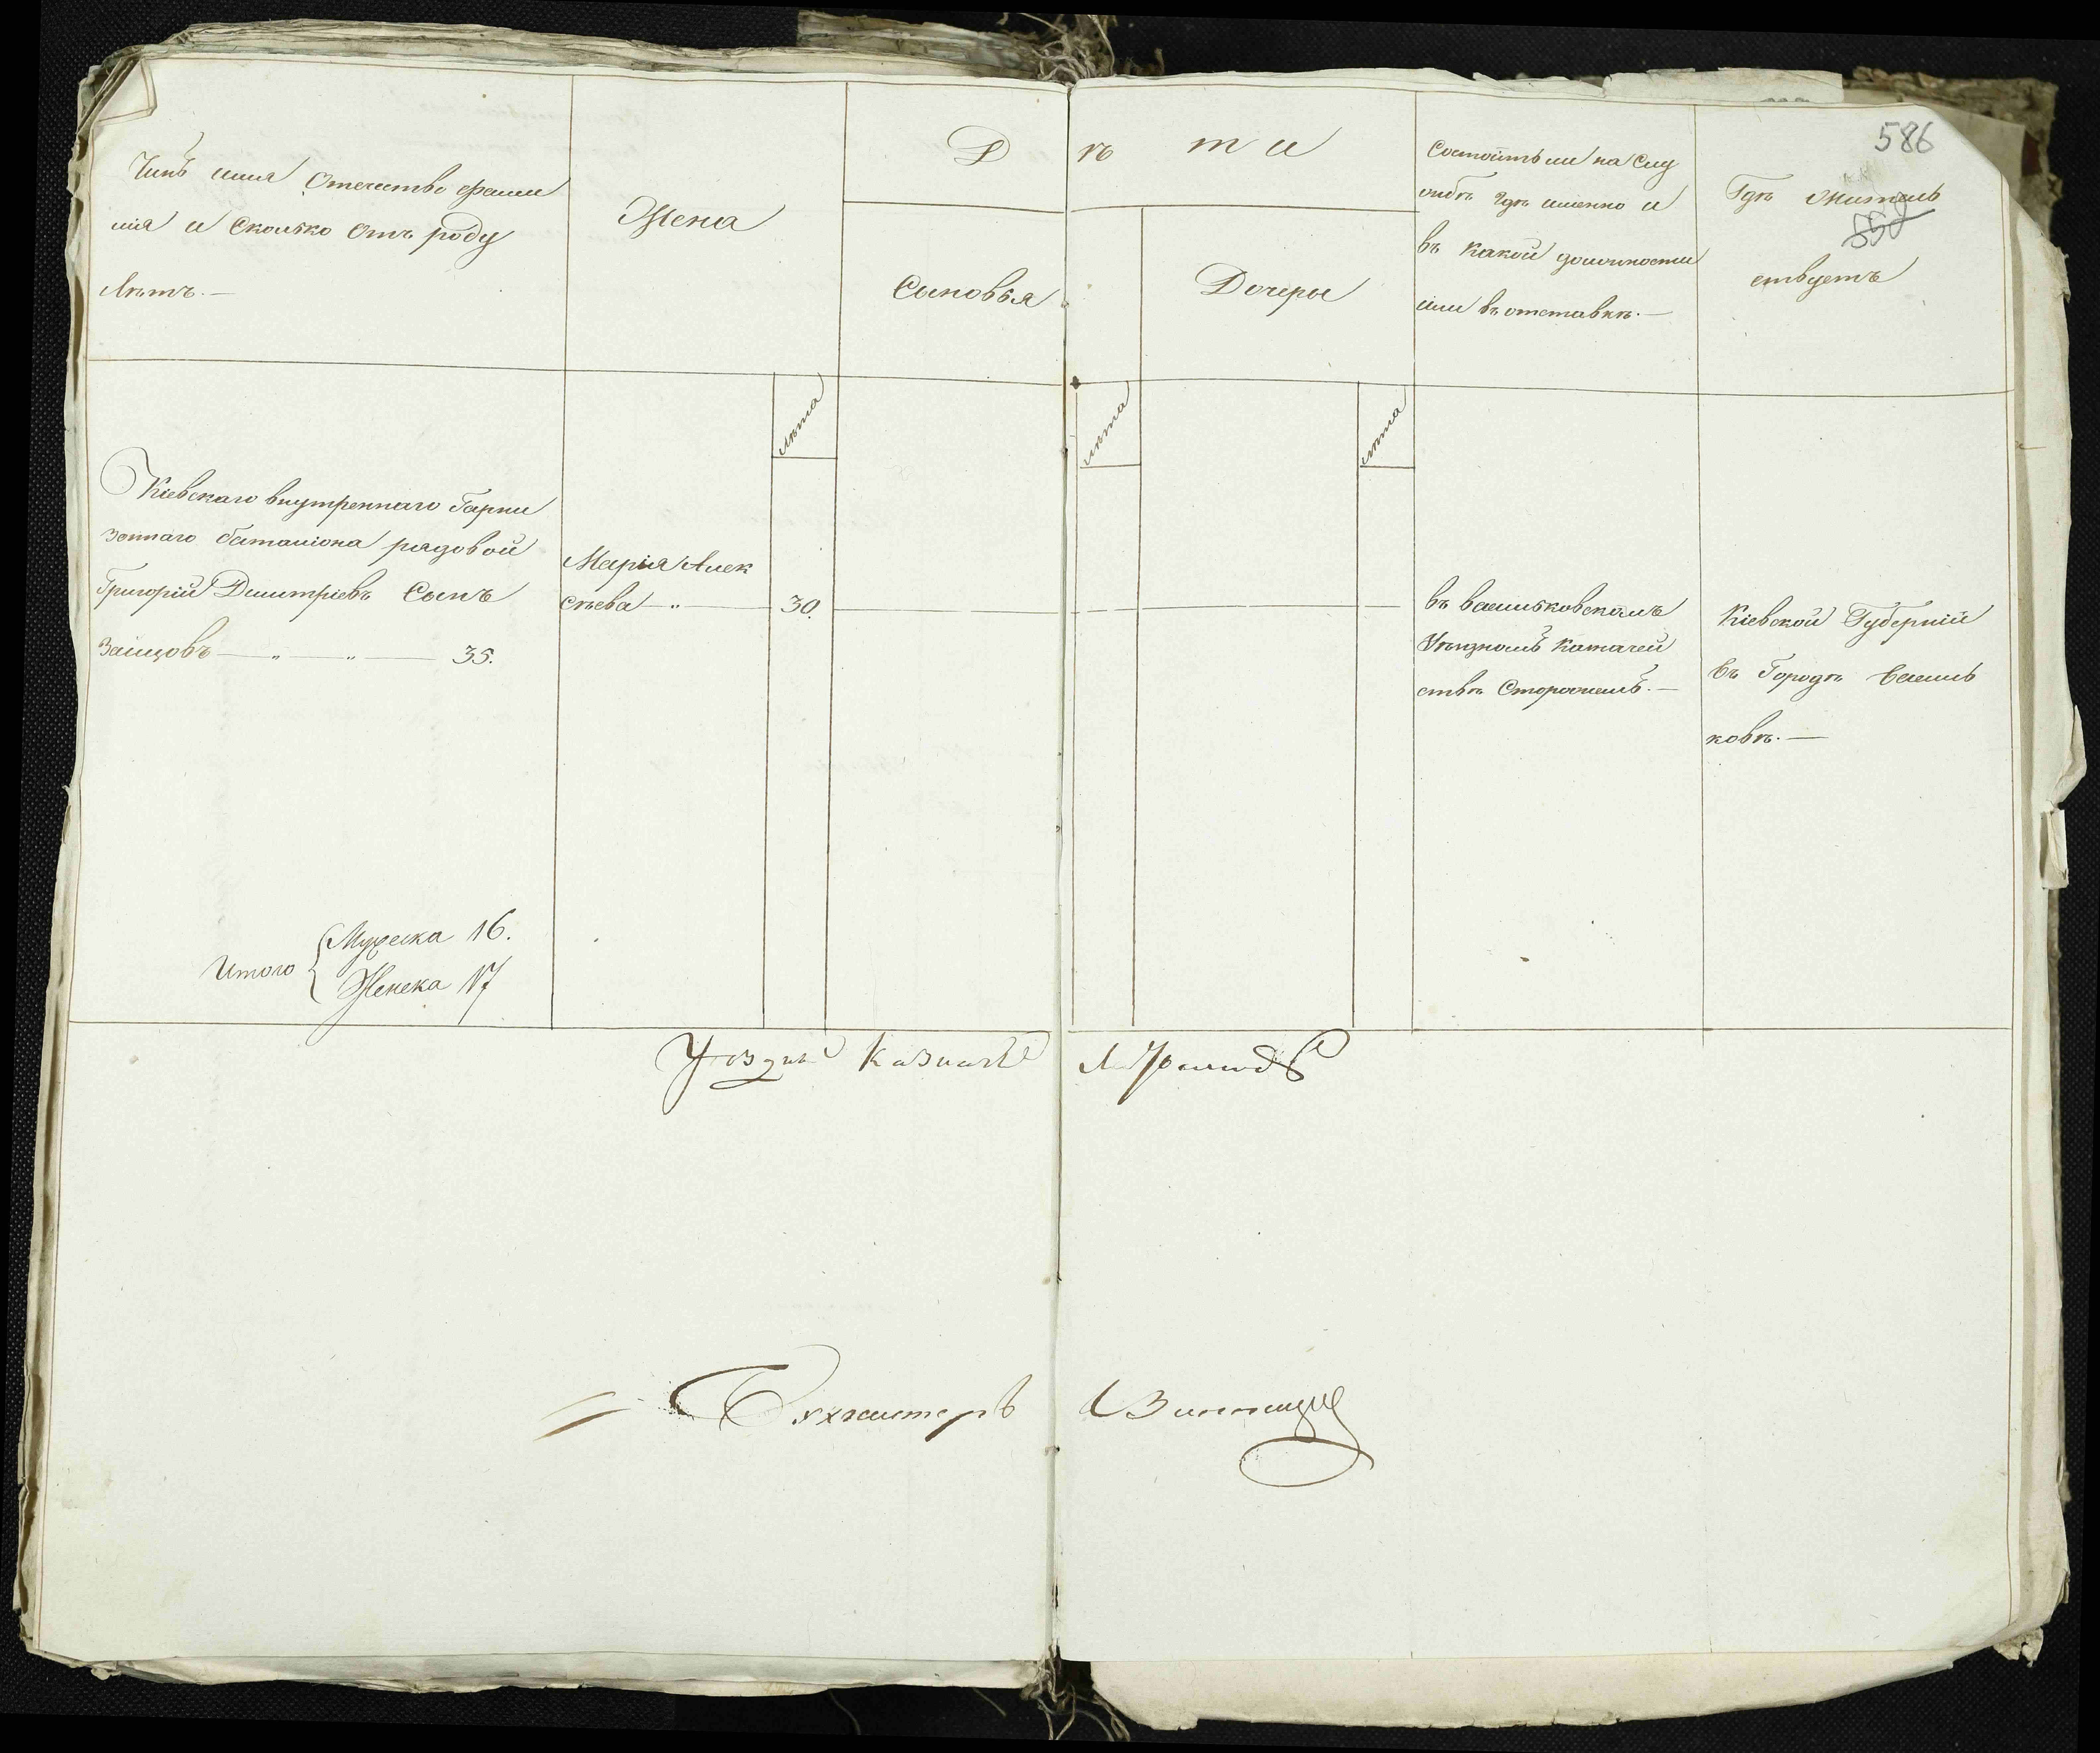 586
550
Чинъ имя Отечество фами
лія и сколько отъ роду
лѣтъ.—
Жена
Дѣти
Сыновья
Дочеры
Состоитъ ли на слу
жбѣ гдѣ именно и
въ какой должности
или въ отставкѣ.—
Гдѣ жительь
ствуетъ
лѣта
лѣта
лѣта
Кіевскаго внутреннаго Гарни
зоннаго баталіона рядовой
Григорій Дмитріевъ Сынъ
Зайцовъ — „ — „ — 35.
Марія Алек
сѣева — „ — 30.
въ васильковскомъ
Уѣздномъ Казначей
ствѣ Сторожемъ.—
Кіевской Губерніи
въ Городѣ василь
ковѣ.—
Итого
Мужеска 16.
Женска 17
Уѣздный Казначей
Бухгалтеръ